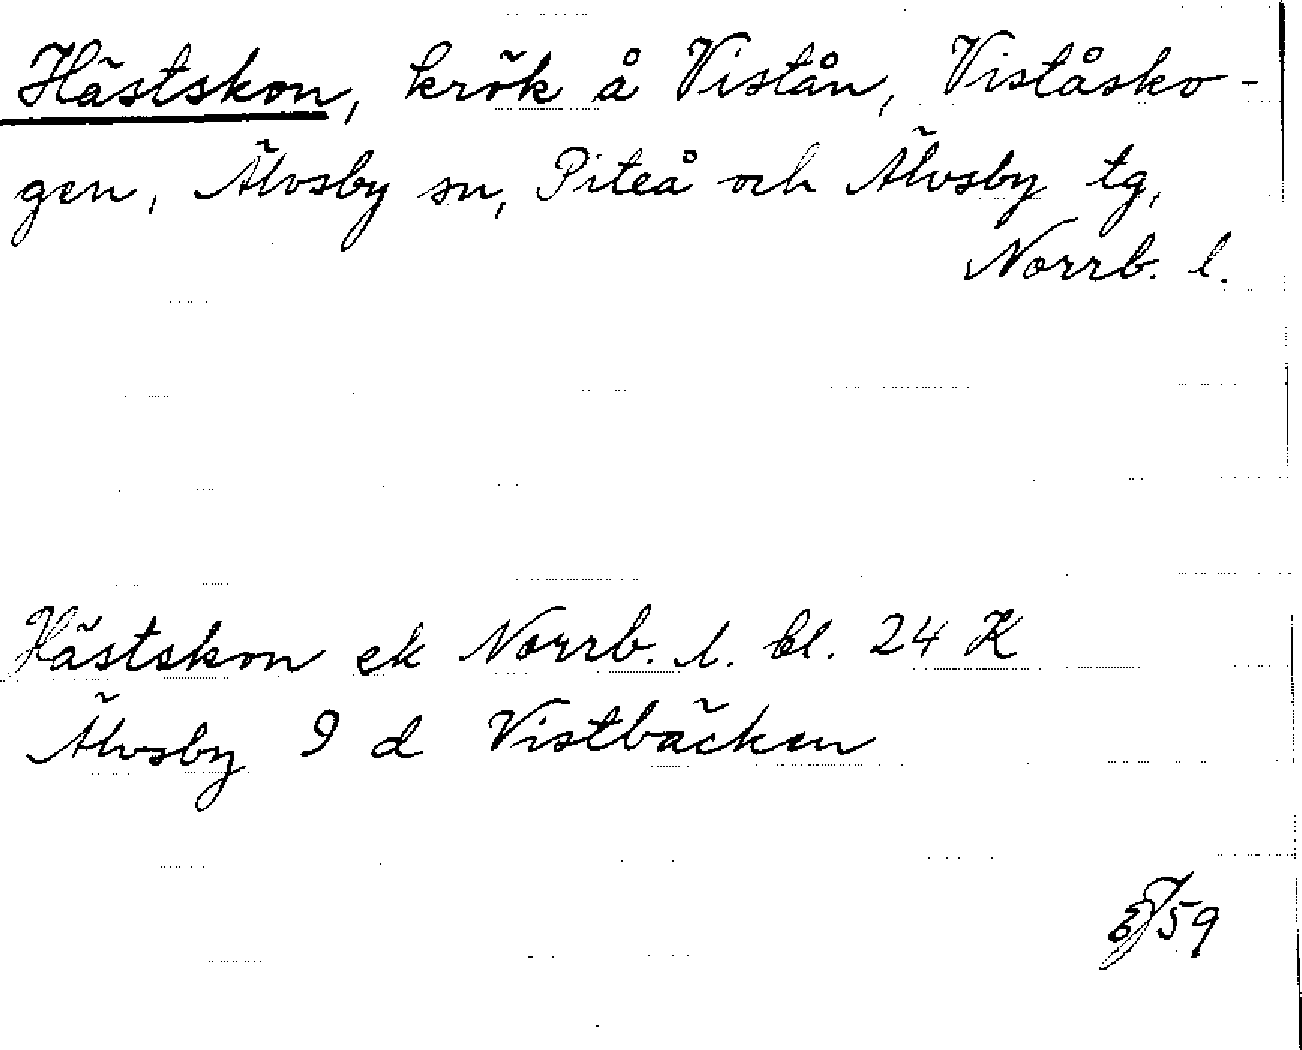 Hästskon, krök å Vistån, Viståsko-
gen, Älvsby sn, Piteå och Älvsby tg,
Norrb. l.
Hästskon ek Norrb. l. bl. 24 K
Älvsby 9 d Vistbäcken
59